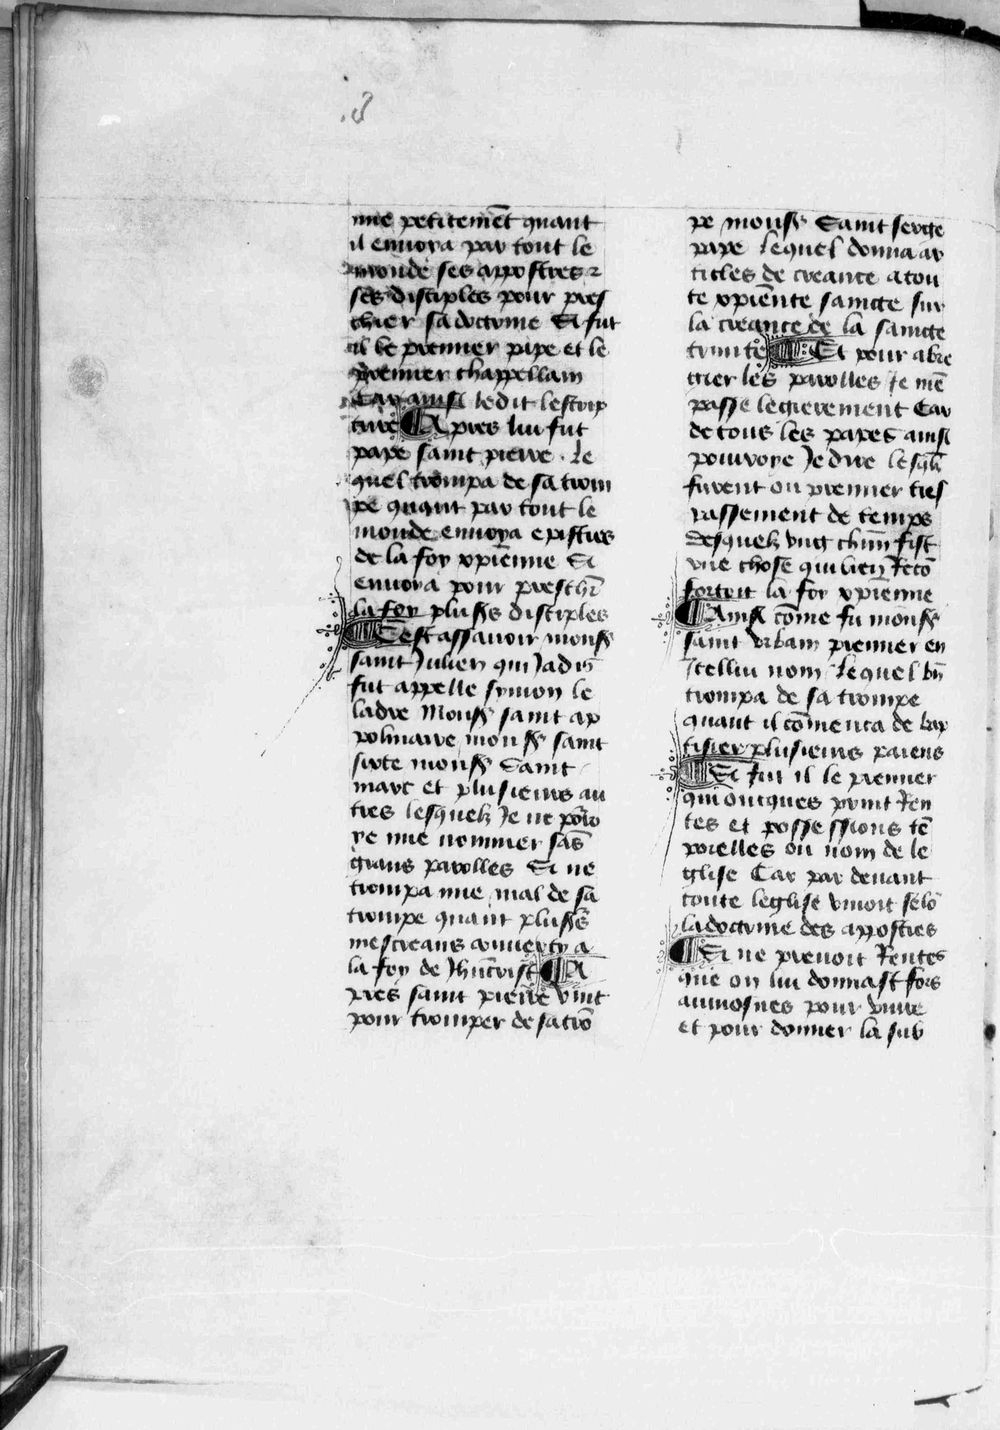 .8
mie petitemēt quant
il envoya par tout le
monde ses appostres ⁊
ses disciples pour pres
chier sa doctrine Si fut
il le premier pape et le
premier chappellain
Car ainsi le dit lescrip
ture ¶ Apres lui fut
pape saint pierre . Le
quel trompa de sa trom
pe quant par tout le
monde envoya epistres
de la foy xpiēnne Si
envoya pour preschr̄
la foy plus̄s disciples
¶ Cest assavoir mons̄
saint Julien qui Jadis
fut appelle symon le
ladre Mons̄ saint ap
polinaire mons̄ saint
sixte mons̄ Saint
marc et plusieurs au
tres lesquelz Je ne por̄o
ye mie nommer sās
grans parolles Si ne
trompa mie mal de sa
trompe quant plus̄s
mescreans converty a
la foy de Jhūcrist ¶ A
pres saint pierre vint
pour tromper de sa trō
pe mons̄ Saint serge
pape Lequel donna ar
ticles de creance a tou
te xpiēnte saincte sur
la creance de la saincte
trinite ¶ Et pour abre
gier les parolles Je mē
passe legierement Car
de tous les papes ainsi
pourroye Je dire lesqlz̄
furent ou premier tres
passement de temps
desquelz ung chūn fist
une chose qui bien Recō
fortoit la foy xpiēnne
¶ Ainsi cōme fu mons̄
saint urbain premier en
Icellui nom Lequel bn̄
trompa de sa trompe
quant il cōmenca de bap
tisier plusieurs paiens
¶ Si fut il le premier
qui oncques print Ren
tes et possessions tē
porelles ou nom de le
glise Car par devant
toute leglise vivoit selō
la doctrine des appostres
¶ Si ne prenoit Rentes
que on lui donnast fors
aumosnes pour vivre
et pour donner la sub